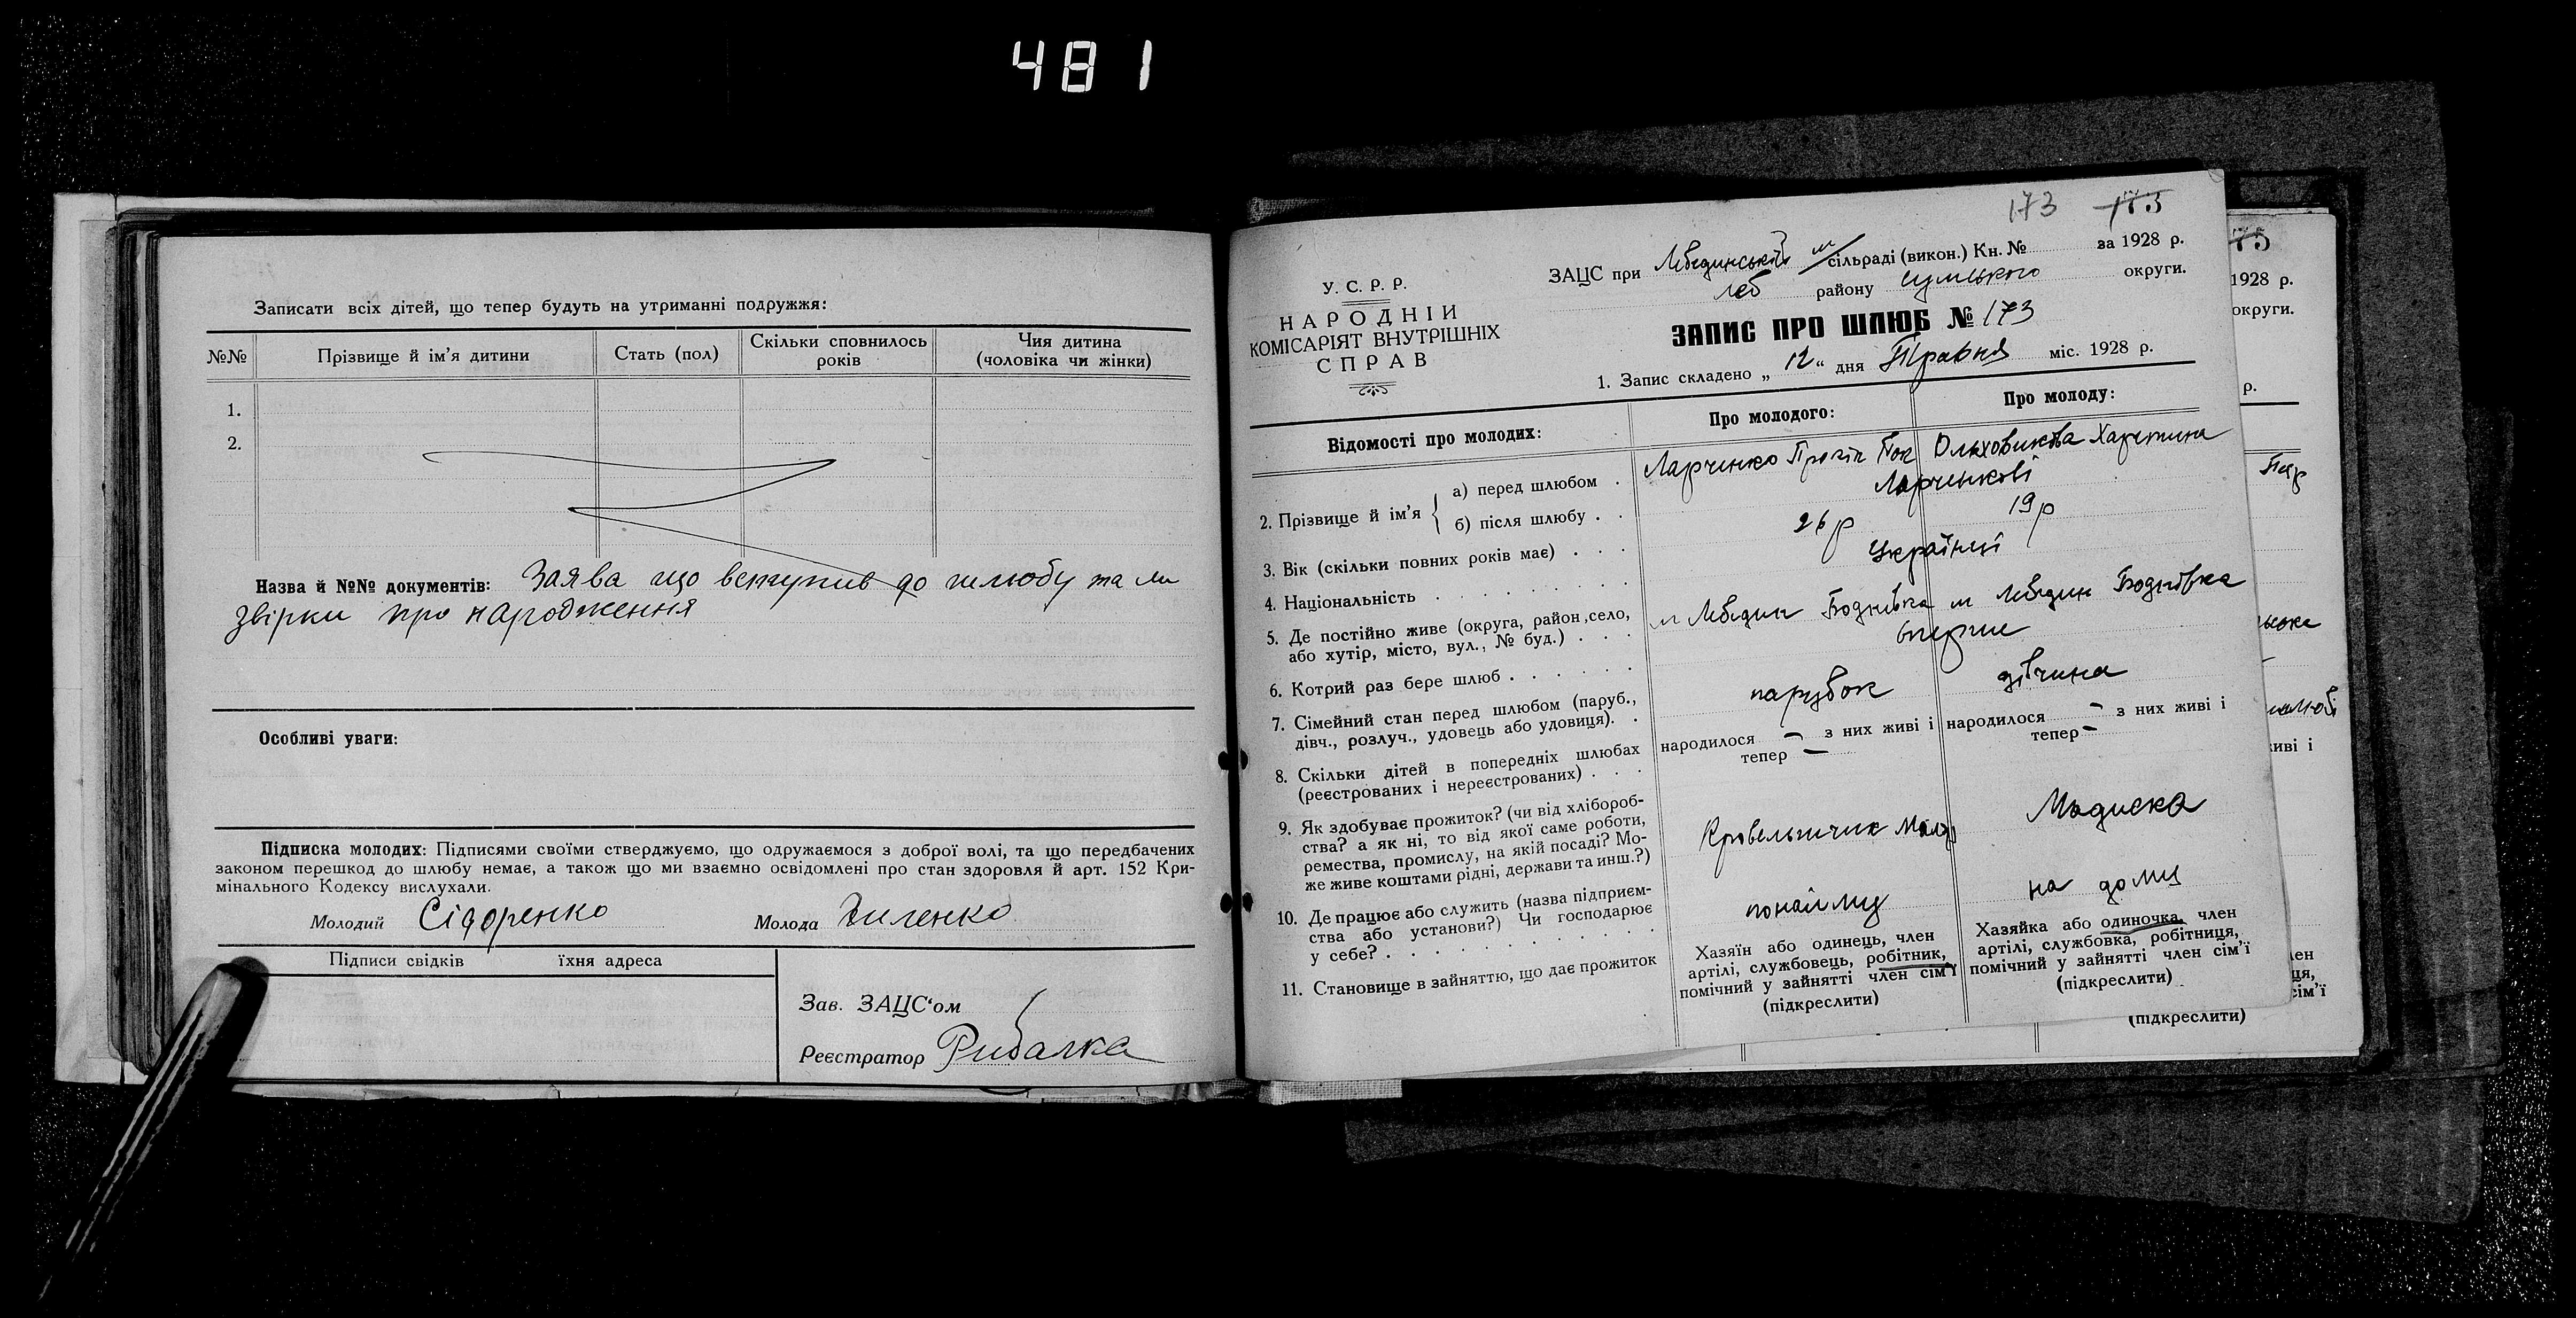 481
Записати всіх дітей, що тепер будуть на утриманні подружжя:
№№ Прізвище й ім'я дитини Стать (пол) Скільки сповнилось років Чия дитина (чоловіка чи жінки)
1.
2.
Назва й №№ документів: Заява що вступив до шлюбу та
звірки про народження
Особливі уваги:
Підписка молодих: Підписями своїми стверджуємо, що одружаємося з доброї волі, та що передбачених
законом перешкод до шлюбу немає, а також що ми взаємно освідомлені про стан здоровля й арт. 152 Кри-
мінального Кодексу вислухали.
Молодий Сідоренко Молода
Підписи свідків їхня адреса
Зав. ЗАЦС'ом
Реєстратор Рибалка
173 173
У. С. Р. Р.
НАРОДНІЙ
КОМІСАРІЯТ ВНУТРІШНІХ
СПРАВ
ЗАЦС при Лебединській м/сільраді (викон.) Кн. № за 1928 р.
Леб району Сумського округи.
ЗАПИС ПРО ШЛЮБ № 173
1. Запис складено „ 12 “ дня Травня міс. 1928 р.
Відомості про молодих: Про молодого: Про молоду:
2. Прізвище й ім'я { а) перед шлюбом . Ларченко Прокіп Ольховикова Харитина
б) після шлюбу . . Ларченкові
3. Вік (скільки повних років має) . . . 26 р 19 р
4. Національність . . . . . . . Українці
5. Де постійно живе (округа, район, село,
або хутір, місто, вул., № буд.) . . . м Лебедин Боднівка м Лебедин Боднівка
6. Котрий раз бере шлюб . . . . . . вперше
7. Сімейний стан перед шлюбом (паруб.,
дівч., розлуч., удовець або удовиця). . парубок дівчина
8. Скільки дітей в попередніх шлюбах
(реєстрованих і нереєстрованих) . . .
народилося – з них живі і
тепер –
народилося – з них живі і
тепер –
9. Як здобуває прожиток? (чи від хлібороб-
ства? а як ні, то від якої саме роботи,
ремества, промислу, на якій посаді? Мо-
же живе коштами рідні, держави та инш.?)
Кровельщик Маляр Модиска
10. Де працює або служить (назва підприєм-
ства або установи?) Чи господарює
у себе? . . . . . . . . . .
по найму на дому
11. Становище в зайняттю, що дає прожиток
Хазяїн або одинець, член
артілі, службовець, робітник,
помічний у зайнятті член сім'ї
(підкреслити)
Хазяйка або одиночка, член
артілі, службовка, робітниця,
помічний у зайнятті член сім'ї
(підкреслити)
75
1928 р.
округи.
р.
живі і
лен
ця,
сім'ї
(підкреслити)